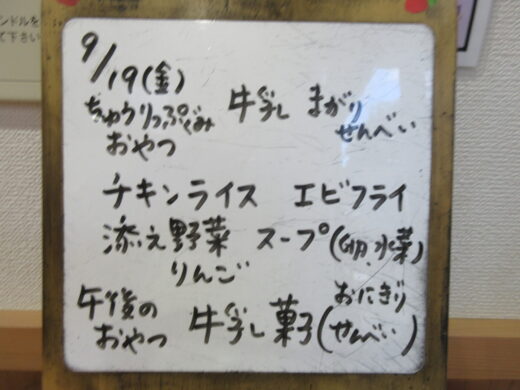 ンドルを
て下さい
9/19(金)
ちゅうりっぷぐみ 牛乳 まがり
おやつ せんべい
チキンライス エビフライ
添え野菜 スープ(卵、水菜)
りんご
午後の 牛乳 菓子(おにぎり
おやつ せんべい)